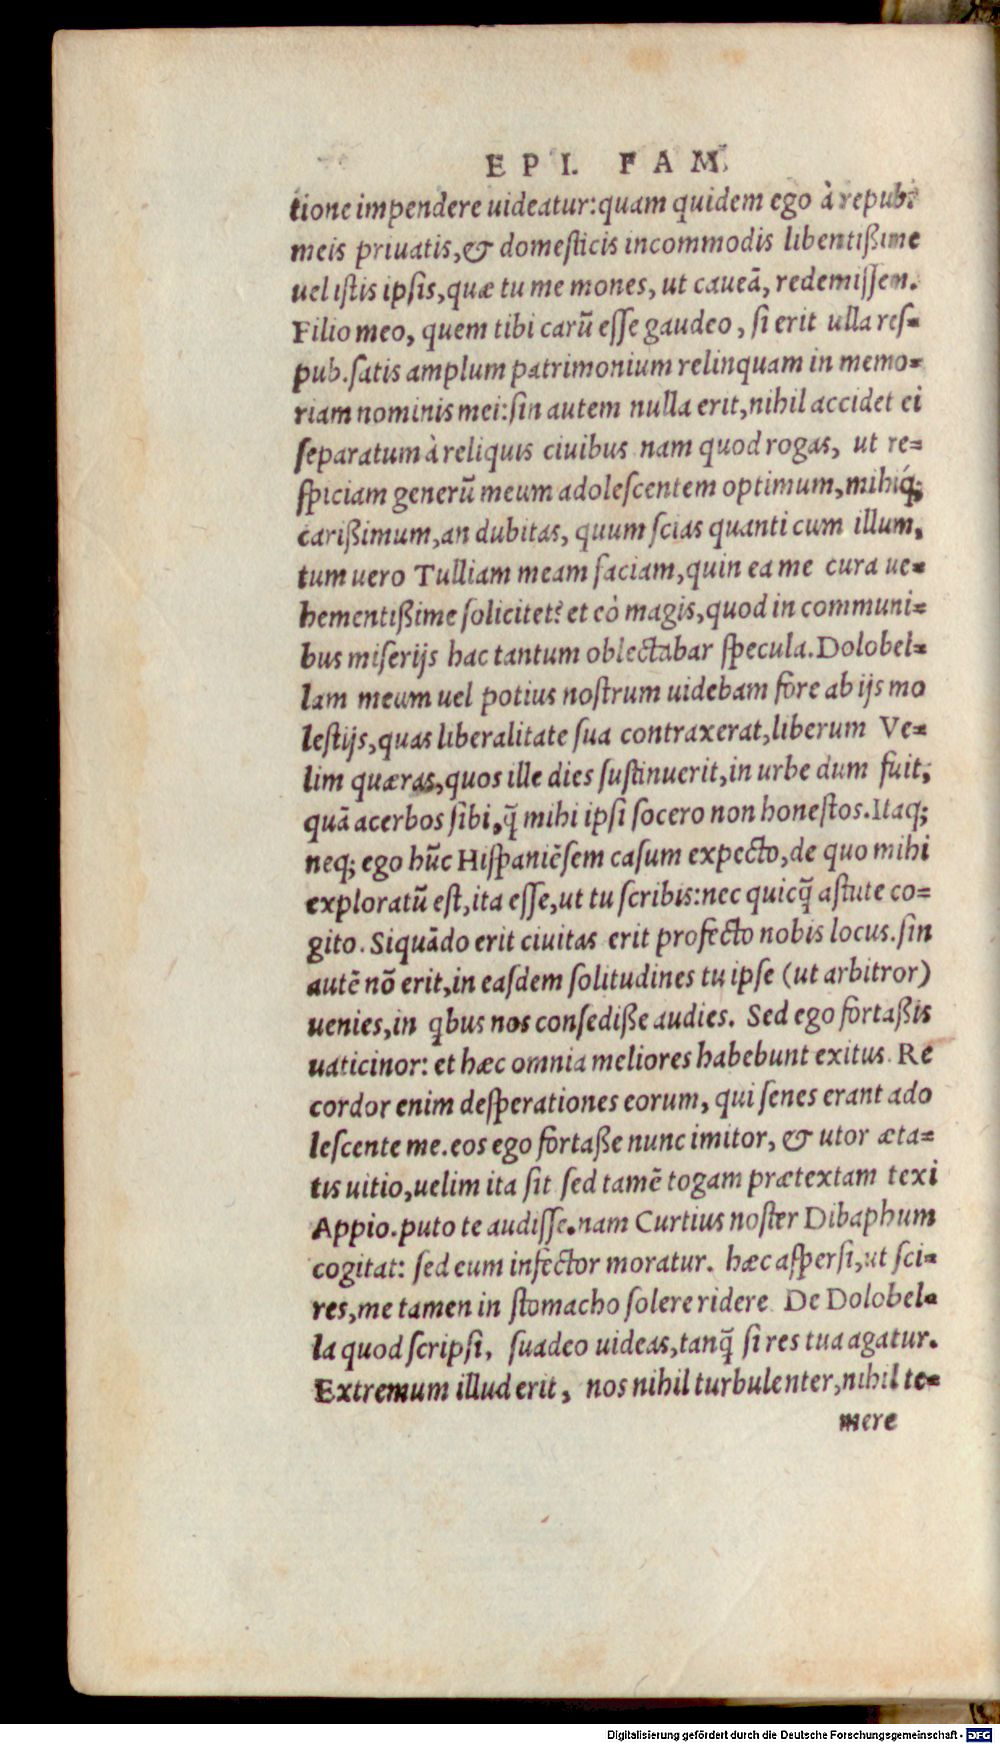 EPI. FAM.
tione impendere uideatur: quam quidem ego à repub.
meis priuatis, & domesticis incommodis libentißime
uel istis ipsis, quæ tu me mones, ut caueā, redemissem.
Filio meo, quem tibi carū esse gaudeo, si erit ulla res-
pub. satis amplum patrimonium relinquam in memo-
riam nominis mei: sin autem nulla erit, nihil accidet ei
separatum à reliquis ciuibus nam quod rogas, ut re-
spiciam generū meum adolescentem optimum, mihiq́;
carißimum, an dubitas, quum scias quanti cum illum,
tum uero Tulliam meam faciam, quin ea me cura ue-
hementißime solicitet? et eò magis, quod in communi-
bus miserijs hac tantum oblectabar specula. Dolobel-
lam meum uel potius nostrum uidebam fore ab ijs mo
lestijs, quas liberalitate sua contraxerat, liberum Ve-
lim quæras, quos ille dies sustinuerit, in urbe dum fuit,
quā acerbos sibi, q̄ mihi ipsi socero non honestos. Itaq;
neq; ego hūc Hispaniēsem casum expecto, de quo mihi
exploratū est, ita esse, ut tu scribis: nec quicq̄ astute co-
gito. Siquādo erit ciuitas erit profecto nobis locus. sin
autē nō erit, in easdem solitudines tu ipse (ut arbitror)
uenies, in qbus nos consediße audies. Sed ego fortaßis
uaticinor: et hæc omnia meliores habebunt exitus. Re
cordor enim desperationes eorum, qui senes erant ado
lescente me. eos ego fortaße nunc imitor, & utor æta-
tis uitio, uelim ita sit sed tamē togam prætextam texi
Appio. puto te audisse. nam Curtius noster Dibaphum
cogitat: sed eum infector moratur. hæc aspersi, ut sci-
res, me tamen in stomacho solere ridere. De Dolobel-
la quod scripsi, suadeo uideas, tanq̄ si res tua agatur.
Extremum illud erit, nos nihil turbulenter, nihil te-
mere
Digitalisierung gefördert durch die Deutsche Forschungsgemeinschaft - DFG